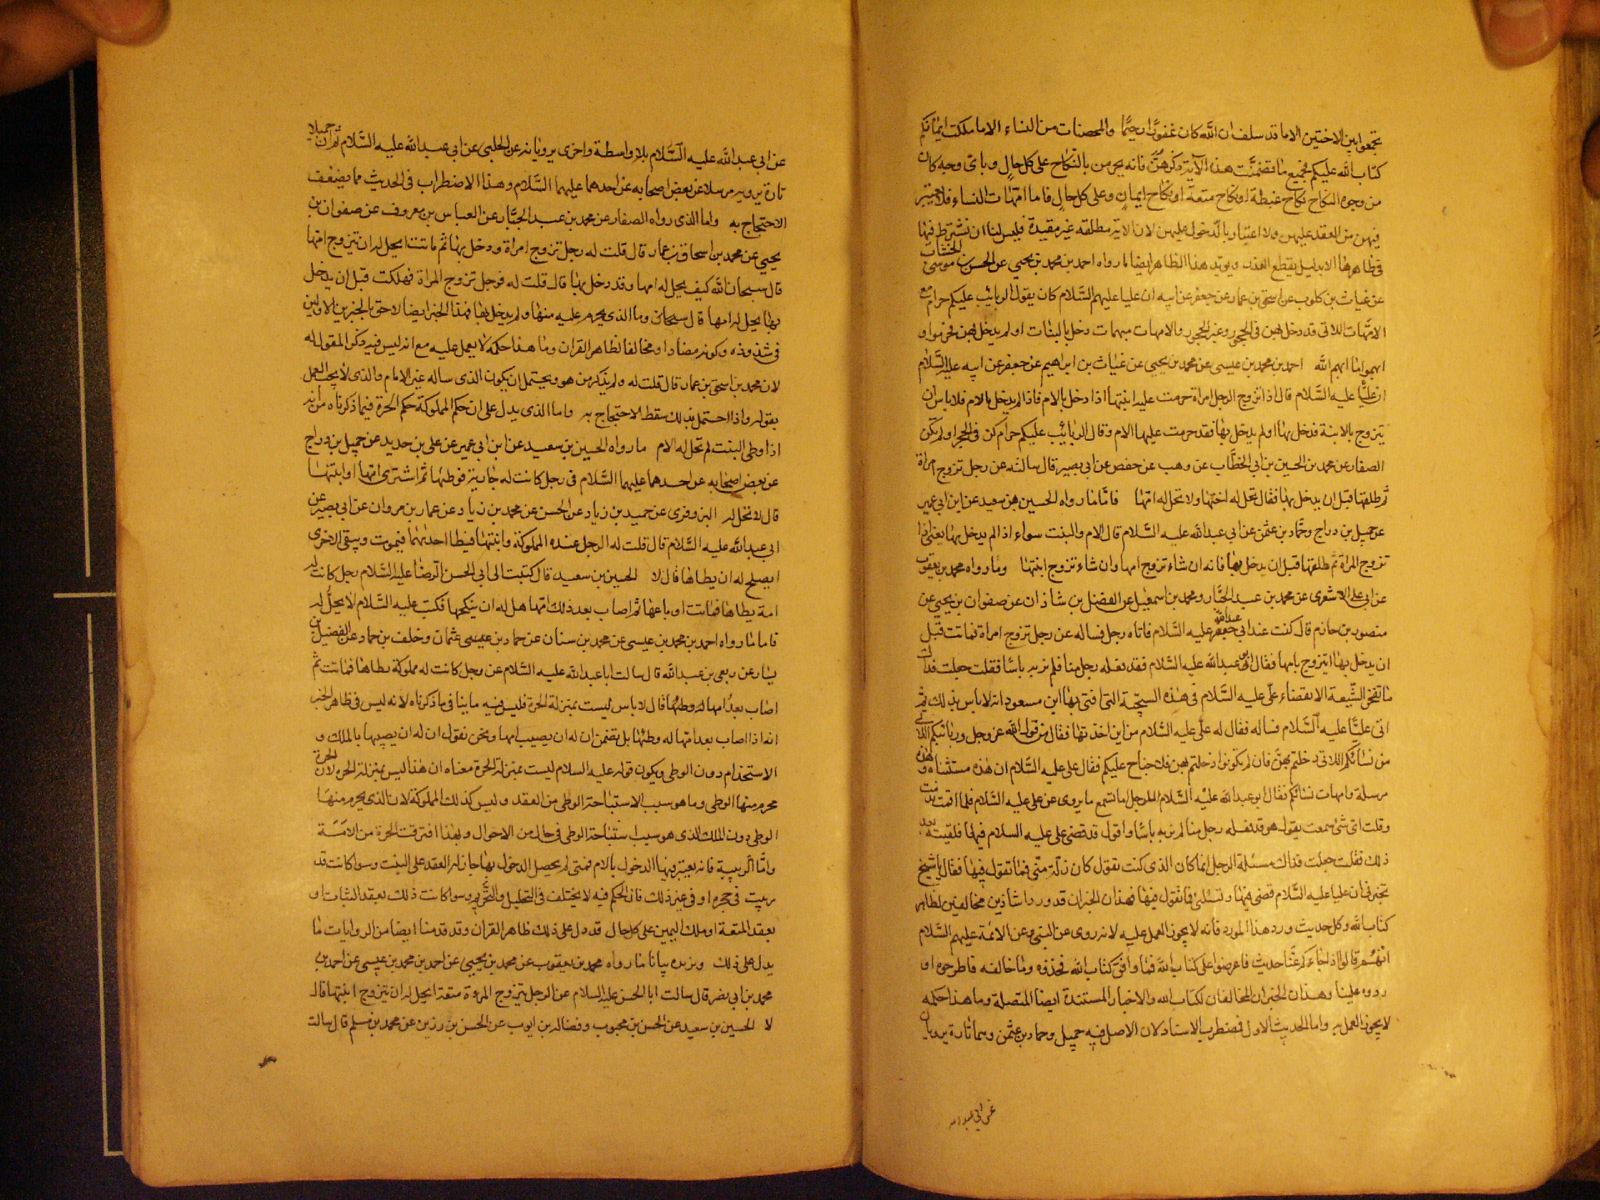 تجمعوا بين الاختين الا ما قد سلف ان الله كان غفورا رحيما والمحصنات من النساء الا ما ملكت ايمانكم
كتاب الله عليكم فجميع ما تضمنت هذه الآية ذكرهن فانه يحرمن بالنكاح على كل حال وباى وجه كان
من وجوه النكاح نكاح غبطة او نكاح متعة او نكاح ايمان وعلى كل حال فاما امهات النساء فلا
فيهن من العقد عليهن ولا اعتبار بالدخول عليهن لان الآية مطلقة غير مقيدة وليس لنا ان نشترط فيها
ظاهرها الا بدليل يقطع العذر ويؤيد هذا الظاهر ايضا ما رواه احمد بن محمد بن يحيى عن الحسن بن موسى الخشاب
عن غياث بن كلوب عن اسحق بن عمار عن جعفر عن ابيه ان عليا عليهم السلام كان يقول الربائب عليكم حرام مع
الامهات اللاتى قد دخل بهن فى الحجور وغير الحجور والامهات مبهمات دخل بالبنات او لم يدخل بهن فحرموا و
ابهموا ما ابهم الله احمد بن محمد بن عيسى عن محمد بن يحيى عن غياث بن ابراهيم عن جعفر عن ابيه عليه السلام
ان عليا عليه السلام قال اذا تزوج الرجل امراة حرمت عليه ابنتها اذا دخل بالام فاذا لم يدخل بالام فلا باس ان
يتزوج بالابنة فدخل بها او لم يدخل بها فقد حرمت عليه الام وقال الربائب عليكم حرام كن فى الحجر او لم تكن
الصفار عن محمد بن الحسين بن ابى الخطاب عن وهب عن حفص عن ابى بصير قال سالته عن رجل تزوج امراة
ثم طلقها قبل ان يدخل بها فقال تحل له ابنتها ولا تحل له امها فاما ما رواه الحسين بن سعيد عن ابن ابى عمير
عن جميل بن دراج وحماد بن عثمن عن ابى عبد الله عليه السلام قال الام والبنت سواء اذا لم يدخل بها يعنى اذا
تزوج المراة ثم طلقها قبل ان يدخل بها فانه ان شاء تزوج امها وان شاء تزوج ابنتها وما رواه محمد بن يعقوب
عن ابى على الاشعرى عن محمد بن عبد الجبار ومحمد بن اسمعيل عن الفضل بن شاذان عن صفوان بن يحيى عن
منصور بن حازم قال كنت عند ابى عبد الله عليه السلام فاتاه رجل فساله عن رجل تزوج امراة فماتت قبل
ان يدخل بها ايتزوج بامها فقال ابو عبد الله عليه السلام قد فعله رجل منا فلم نر به باسا فقلت جعلت فداك
ما تفخر الشيعة الا بقضاء على عليه السلام فى هذه التى افتى بها ابن مسعود انه لا باس بذلك ثم
اتى عليا عليه السلام فساله فقال له على عليه السلام من اين اخذتها فقال من قول الله عز وجل وربائبكم اللاتى
من نسائكم اللاتى دخلتم بهن فان لم تكونوا دخلتم بهن فلا جناح عليكم فقال على عليه السلام ان هذه مستثناة وهذه
مرسلة وامهات نسائكم فقال ابو عبد الله عليه السلام للرجل اما تسمع ما يروى عن على عليه السلام فلما قمت ندمت
وقلت اى شئ صنعت يقول هو قد فعله رجل منا لم نر به باسا واقول قد قضى على عليه السلام فيها فلقيته بعد
ذلك فقلت جعلت فداك مسئلة الرجل انما كان الذى كنت تقول كان زلة منى فما تقول فيها فقال يا شيخ
تخبرنى ان عليا عليه السلام قضى فيها وتسئلنى ما تقول فيها فهذان الخبران قد وردا شاذين مخالفين لظاهر
كتاب الله وكل حديث ورد هذا المورد فانه لا يجوز العمل عليه لانه روى عن النبى وعن الائمة عليهم السلام
انهم قالوا اذا جاءكم عنا حديث فاعرضوا على كتاب الله فما وافق كتاب الله فخذوه وما خالفه فاطرحوه او
ردوه علينا وهذان الخبران المخالفان لكتاب الله والاخبار المستندة ايضا المتصلة وما هذا حكمه
لا يجوز العمل به واما الحديث الاول فمضطرب الاسناد لان الاصل فيه جميل وحماد بن عثمن وهما تارة يرويان
عن ابى عبد الله
عن ابى عبد الله عليه السلام بلا واسطة واخرى يرويانه عن الحلبى عن ابى عبد الله عليه السلام ثم ان جميلا
تارة يرويه مرسلا عن بعض اصحابه عن احدهما عليهما السلام وهذا الاضطراب فى الحديث مما يضعف
الاحتجاج به واما الذى رواه الصفار عن محمد بن عبد الجبار عن العباس بن معروف عن صفوان بن
يحيى عن محمد بن اسحاق بن عمار قال قلت له رجل تزوج امراة ودخل بها ثم ماتت ايحل له ان يتزوج امها
قال سبحان الله كيف يحل له امها وقد دخل بها قال قلت له فرجل تزوج المراة فهلكت قبل ان يدخل
بها يحل له امها قال سبحان وما الذى يحرم عليه منها ولم يدخل بها فهذا الخبر ايضا لاحق بالخبرين الاولين
فى شذوذه وكونه مضادا ومخالفا لظاهر القران وما هذا حكمه لا يعمل عليه مع انه ليس فيه ذكر المقول له
لان محمد بن اسحق بن عمار قال قلت له ولم يذكر من هو ويحتمل ان يكون الذى ساله غير الامام والذى لا يجب العمل
بقوله واذا احتمل ذلك سقط الاحتجاج به واما الذى يدل على ان حكم المملوكة حكم الحرة فيما ذكرناه من انه
اذا وطى البنت لم تحل له الام ما رواه الحسين بن سعيد عن ابن ابى عمير عن على بن حديد عن جميل بن دراج
عن بعض اصحابه عن احدهما عليهما السلام فى رجل كانت له جارية فوطئها ثم اشترى امها او ابنتها
قال لا تحل له البزوفرى عن حميد بن زياد عن الحسن عن محمد بن زياد عن عمار بن مروان عن ابى بصير عن
ابى عبد الله عليه السلام قال قلت له الرجل عنده المملوكة وابنتها فيطا احدهما فتموت ويبقى الاخرى
ايصلح له ان يطاها قال لا الحسين بن سعيد قال كتبت الى ابى الحسن الرضا عليه السلام رجل كانت له
امة يطاها فماتت او باعها ثم اصاب بعد ذلك امها هل له ان ينكحها فكتب عليه السلام لا يحل له
فاما ما رواه احمد بن محمد بن عيسى عن محمد بن سنان عن حماد بن عيسى عثمان وخلف بن حماد عن الفضيل بن
يسار عن ربعى بن عبد الله قال سالت ابا عبد الله عليه السلام عن رجل كانت له مملوكة يطاها فماتت ثم
اصاب بعد امها له وطئها قال لا باس ليست بمنزلة الحرة فليس فيه ما ينافى ما ذكرناه لانه ليس فى ظاهر الخبر
انه اذا اصاب بعد امها له وطئها بل يتضمن ان له ان يصيب امها ونحن نقول ان له ان يصيبها بالملك و
الاستخدام دون الوطى ويكون قوله عليه السلام ليست بمنزلة الحرة معناه ان هذا ليس بمنزلة الحرة لان الحرة
محرم منها الوطى وما هو سبب الاستباحة الوطى من العقد وليس كذلك المملوكة لان الذى يحرم منها
الوطى دون الملك الذى هو سبب استباحة الوطى فى حال من الاحوال وبهذا افترقت الحرة من الامة
واما الربيبة فانه يعتبر فيها الدخول بالام فمتى لم يحصل الدخول بها جاز له العقد على البنت وسوا كانت قد
ربيت فى حجره او فى غير ذلك فان الحكم فيه لا يختلف فى التحليل والتحريم وسوا كانت ذلك بعقد الثبات او
بعقد المتعة او ملك اليمين على كل حال قد دل على ذلك ظاهر القران وقد قدمنا ايضا من الروايات ما
يدل على ذلك ويزيده بيانا ما رواه محمد بن يعقوب عن محمد بن يحيى عن احمد بن محمد بن عيسى عن احمد بن
محمد بن ابى نصر قال سالت ابا الحسن عليه السلام عن الرجل يتزوج المروة متعة ايحل له ان يتزوج ابنتها قال
لا الحسين بن سعيد عن الحسن بن محبوب وفضالة بن ايوب عن الحسن بن رزين عن محمد بن مسلم قال سالت